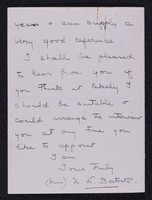 years & can supply a
very good reference
I shall be pleased
to hear from you if
you think at likely I
should be suitable &
could arrange to interview
you at any time you
like to appoint
I am
Yours Truly
(Mrs)